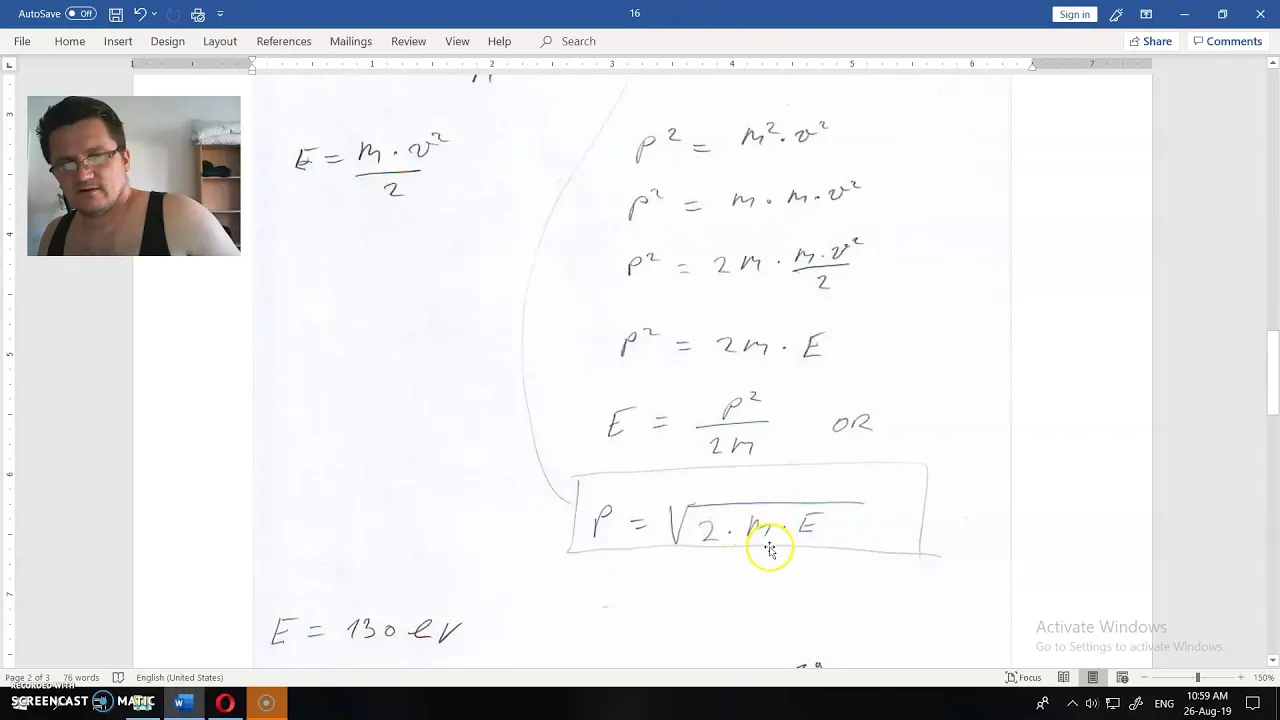 AutoSave Off
16
Sign in
File Home Insert Design Layout References Mailings Review View Help Search
Share Comments
1 1 2 3 4 5 6 7
3
4
5
6
7
E = m · v²
2
p² = m² · v²
p² = m · m · v²
p² = 2m · m · v²
2
p² = 2m · E
E = p²
2m
OR
p = √2 · m · E
E = 130 eV
Activate Windows
Go to Settings to activate Windows.
Page 2 of 3 76 words English (United States)
Focus
150%
RECORDED WITH
SCREENCAST MATIC
ENG
10:59 AM
26-Aug-19